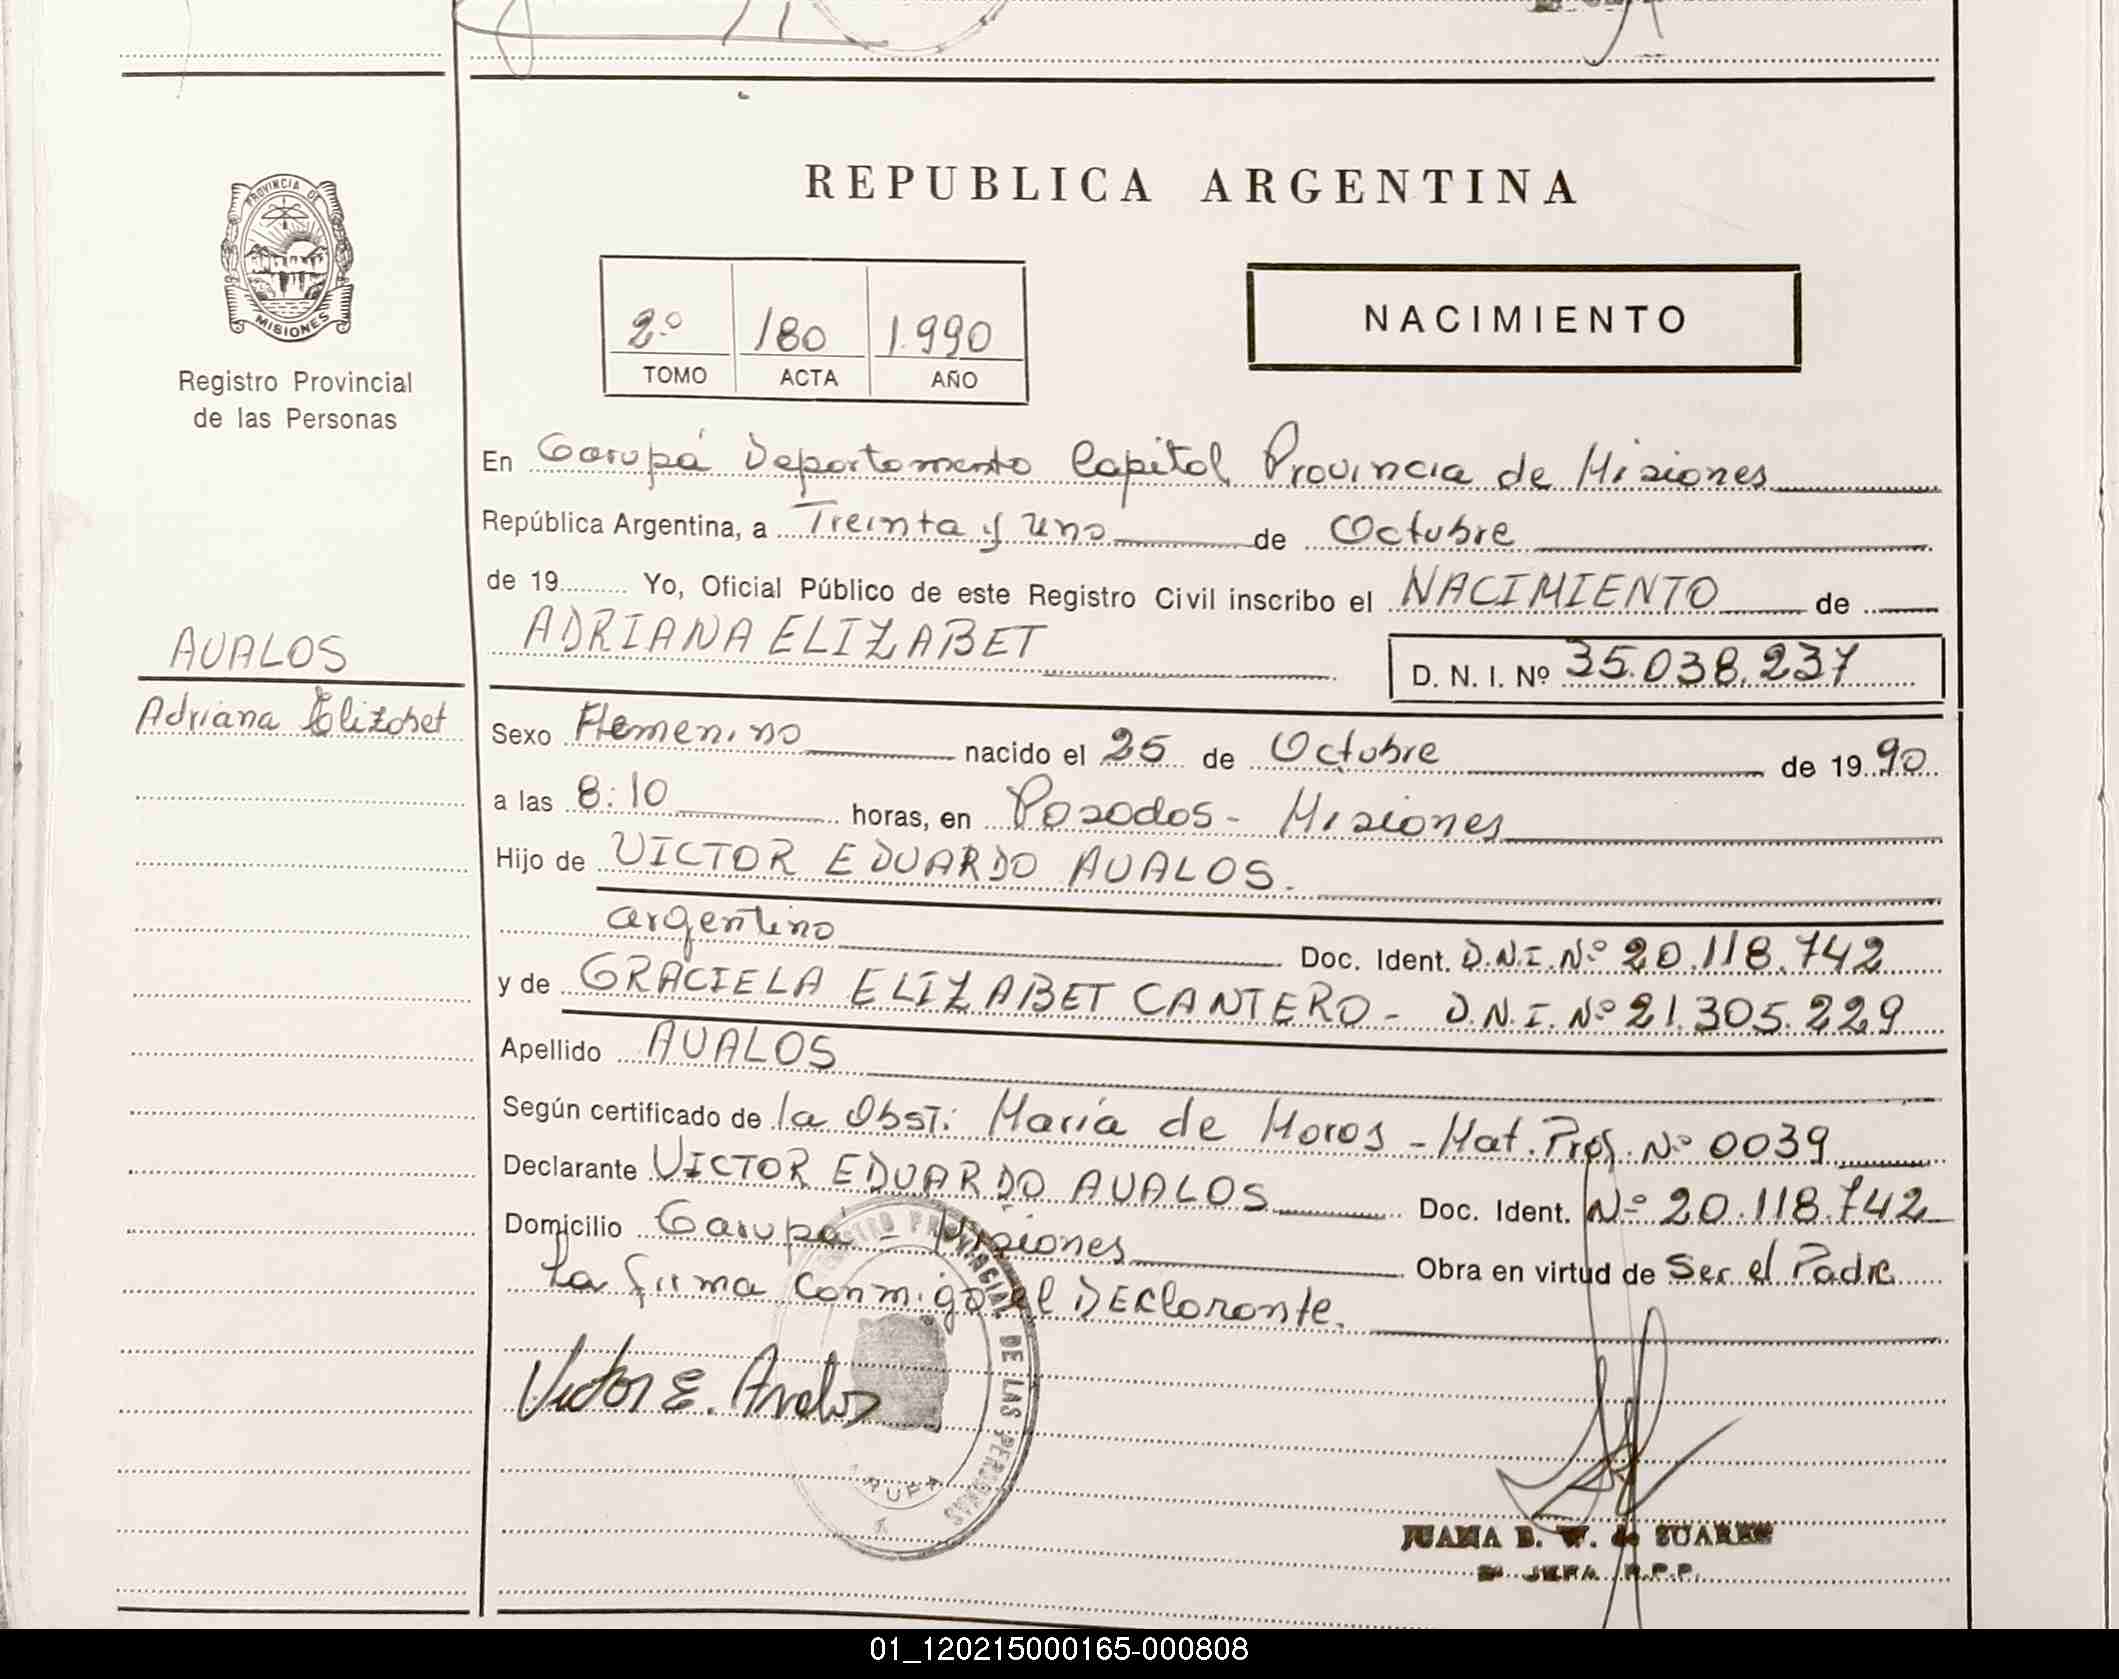 REPUBLICA ARGENTINA
PROVINCIA DE
MISIONES
Registro Provincial
de las Personas
2º 180 1.990
TOMO ACTA AÑO
NACIMIENTO
En Garupá Departamento Capital Provincia de Misiones
República Argentina, a Treinta y Uno de Octubre
de 19 Yo, Oficial Público de este Registro Civil inscribo el NACIMIENTO de
ADRIANA ELIZABET
D. N. I. Nº 35.038.237
AVALOS
Adriana Elizabet
Sexo Femenino nacido el 25 de Octubre de 1990
a las 8:10 horas, en Posadas - Misiones
Hijo de VICTOR EDUARDO AVALOS.
argentino Doc. Ident. D.N.I. Nº 20.118.742
y de GRACIELA ELIZABET CANTERO - D.N.I. Nº 21.305.229
Apellido AVALOS
Según certificado de la Obst: María de Moros - Mat. Prof. Nº 0039
Declarante VICTOR EDUARDO AVALOS Doc. Ident. Nº 20.118.742
Domicilio Garupá - Misiones Obra en virtud de Ser el Padre
La firma conmigo el DEClarante.
Victor E. Avalos
REGISTRO PROVINCIAL DE LAS PERSONAS
GARUPA
JUANA B. W. de SUAREZ
JEFA R.P.P.
01_120215000165-000808